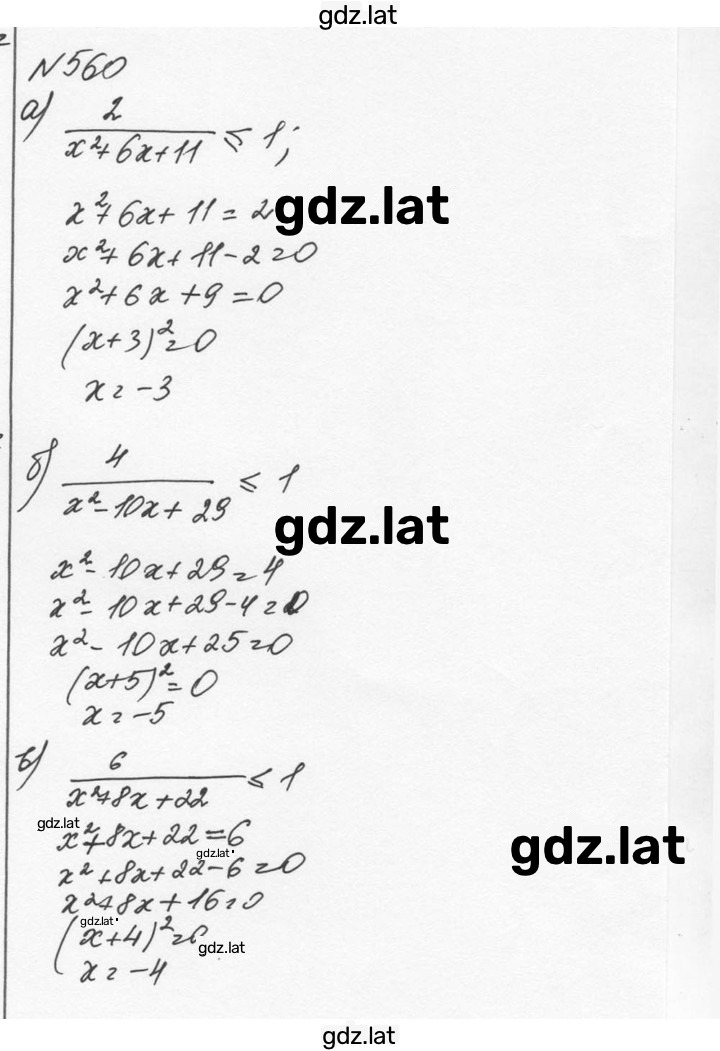 gdz.lat
N560
а) 2/(x²+6x+11) ≤ 1;
x²+6x+11=2
gdz.lat
x²+6x+11-2=0
x²+6x+9=0
(x+3)²=0
x=-3
б) 4/(x²-10x+29) ≤ 1
gdz.lat
x²-10x+29=4
x²-10x+29-4=0
x²-10x+25=0
(x+5)²=0
x=-5
в) 6/(x²+8x+22) ≤ 1
gdz.lat
x²+8x+22=6
gdz.lat
gdz.lat
x²+8x+22-6=0
x²+8x+16=0
gdz.lat
(x+4)²=0
gdz.lat
x=-4
gdz.lat